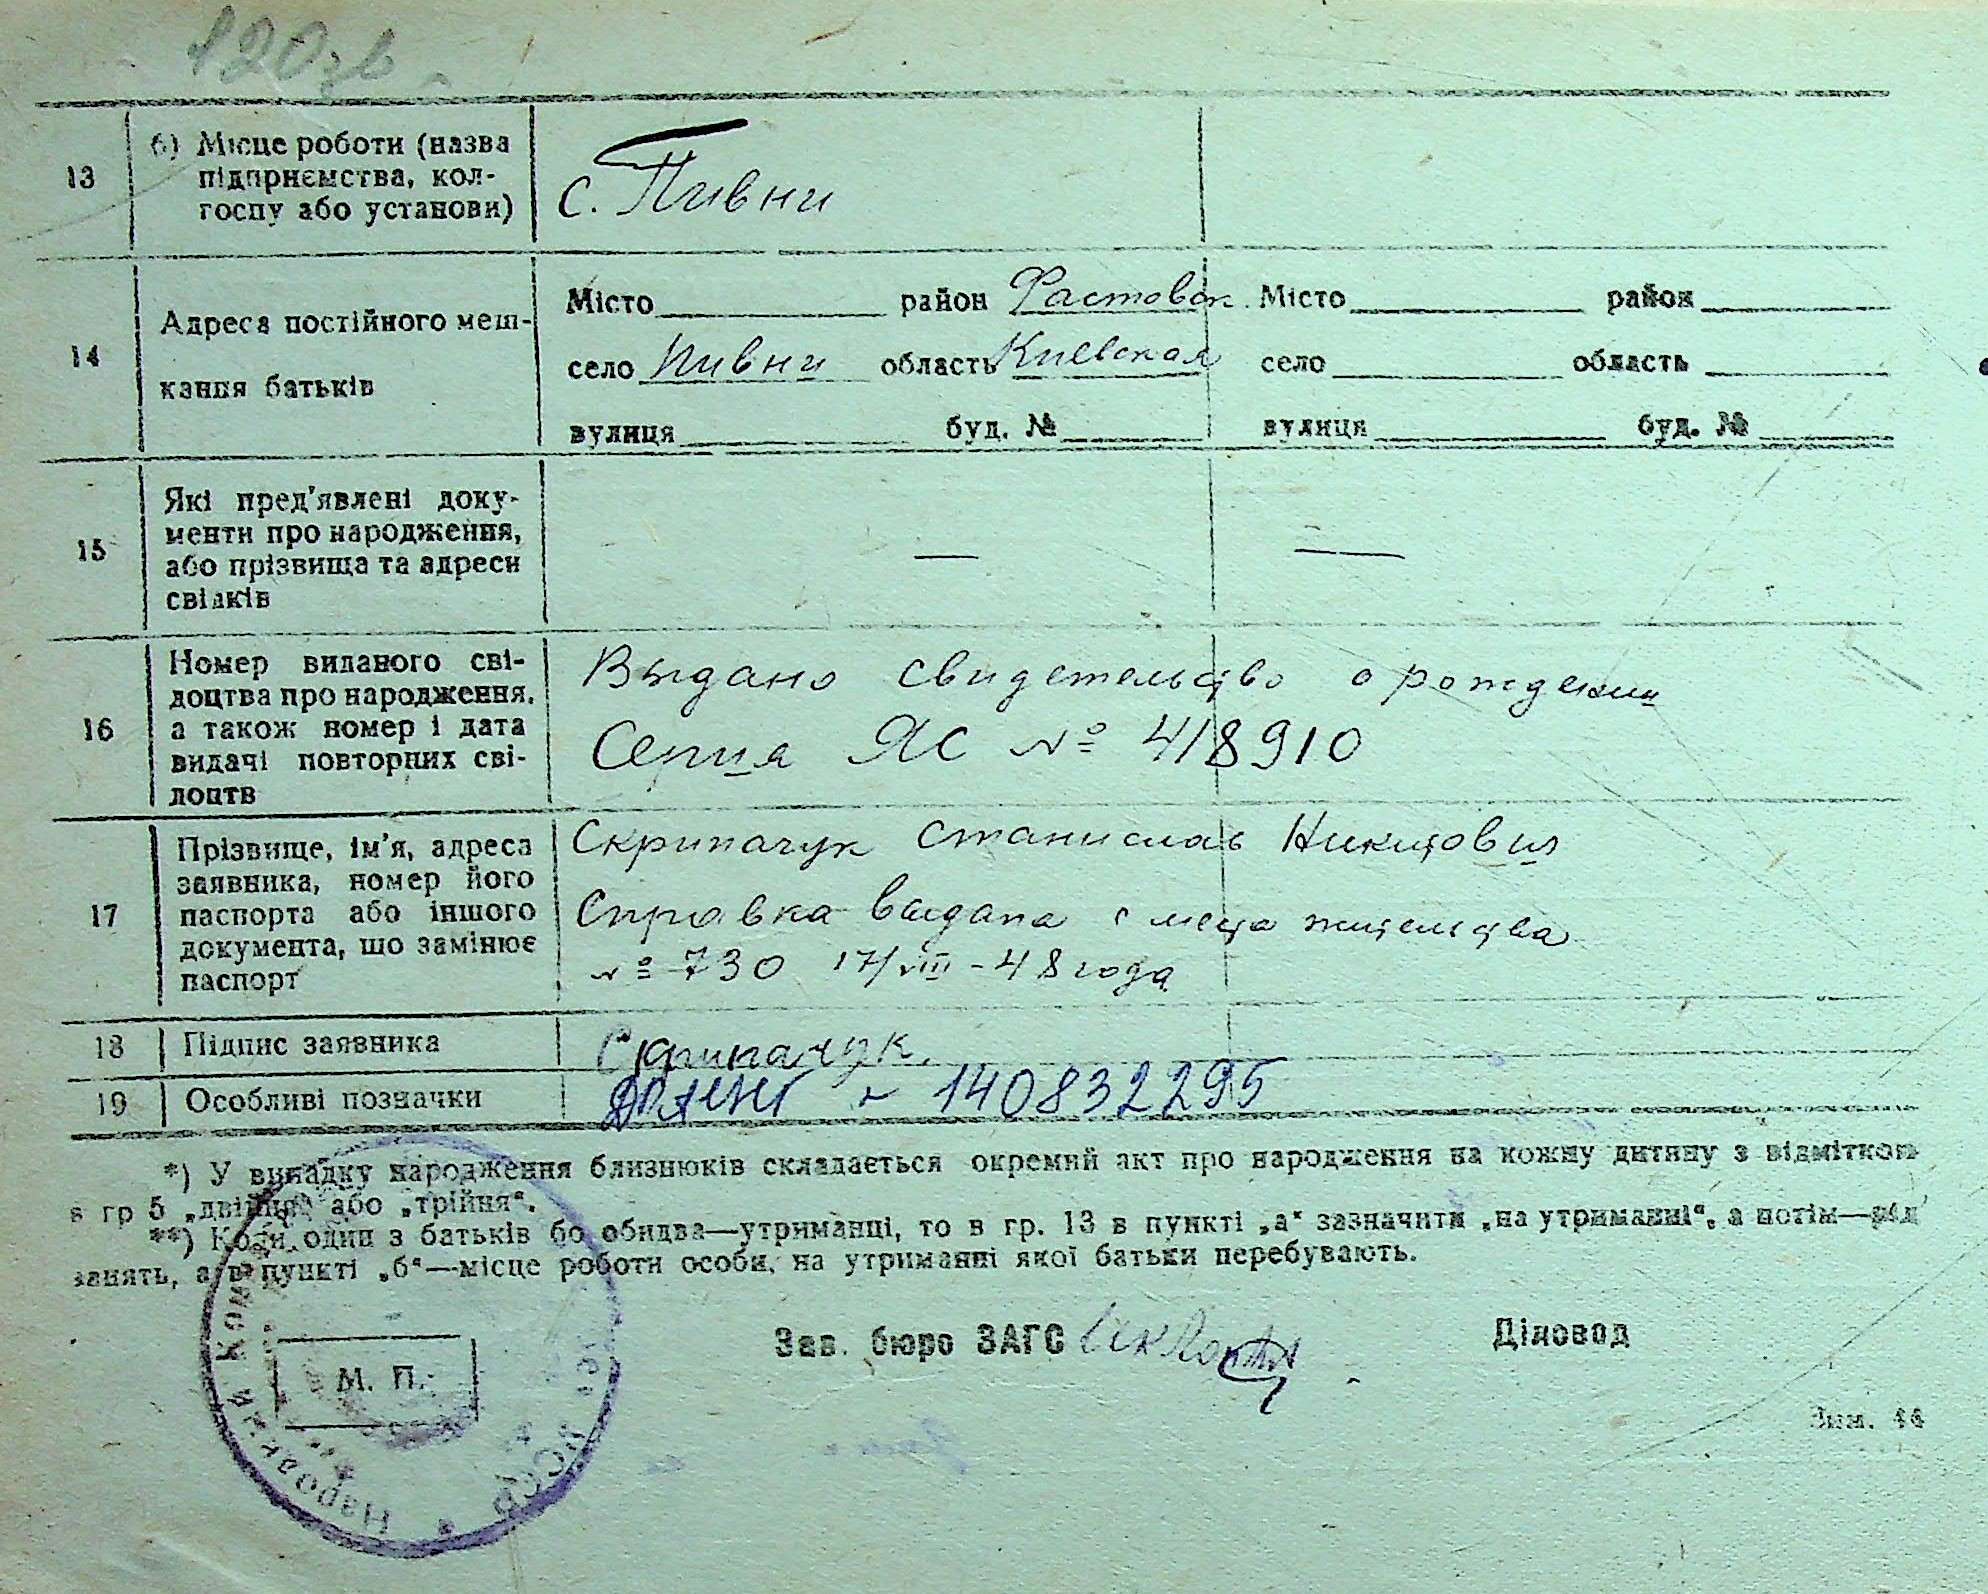 120зв
13
б) Місце роботи (назва
підприємства, кол-
госпу або установи)
с. Пивни
14
Адреса постійного меш-
кання батьків
Місто район Фастовск.
село Пивни область Киевская
вулиця буд. №
Місто район
село область
вулиця буд. №
15
Які пред'явлені доку-
менти про народження,
або прізвища та адреси
свідків
—
—
16
Номер виданого сві-
доцтва про народження,
а також номер і дата
видачі повторних сві-
доцтв
Выдано свидетельство о рождении
Серия ЯС № 418910
17
Прізвище, ім'я, адреса
заявника, номер його
паспорта або іншого
документа, що замінює
паспорт
Скрипачук Станислав Никитович
Справка выдана с места жительства
№ 730 17/VIII-48 года
18
Підпис заявника
Скрипачук.
19
Особливі позначки
140832295
*) У випадку народження близнюків складається окремий акт про народження на кожну дитину з відміткою
в гр 5 „двійня“ або „трійня“.
**) Коли один з батьків бо обидва—утриманці, то в гр. 13 в пункті „а“ зазначити „на утриманні“, а потім—рід
занять, а в пункті „б“—місце роботи особи, на утриманні якої батьки перебувають.
Зав. бюро ЗАГС
Діловод
М. П.
Народний Ком
УССР
Зам. 44